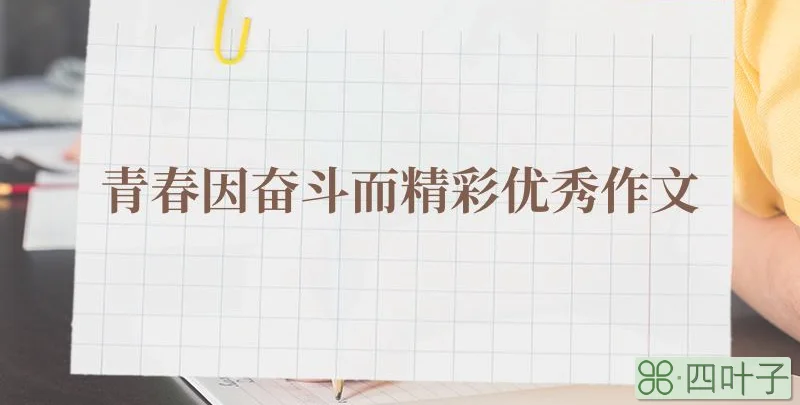 青春因奋斗而精彩优秀作文
四叶子